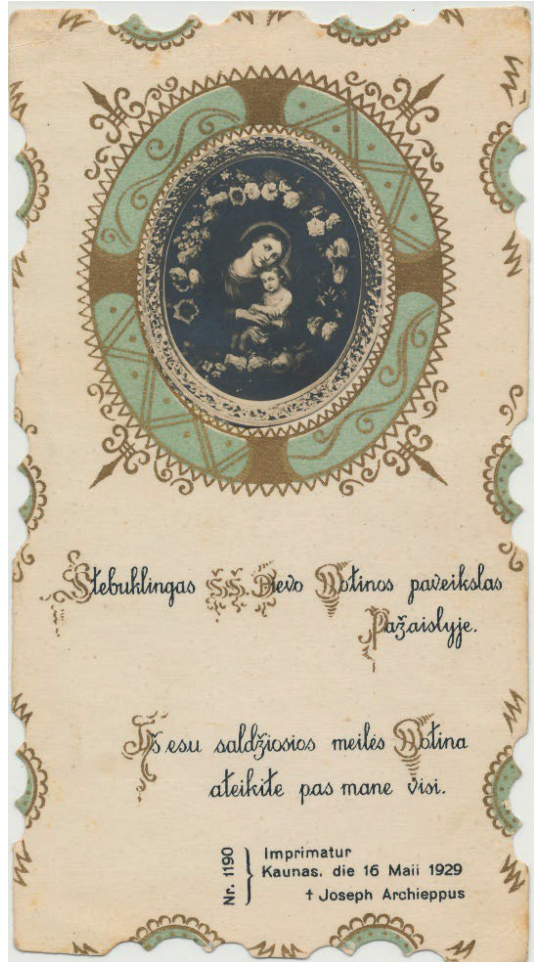 Stebuklingas ŠŠ. Dievo Motinos paveikslas
Pažaislyje.
Aš esu saldžiosios meilės Motina
ateikite pas mane visi.
Nr. 1190
Imprimatur
Kaunas. die 16 Maii 1929
† Joseph Archieppus